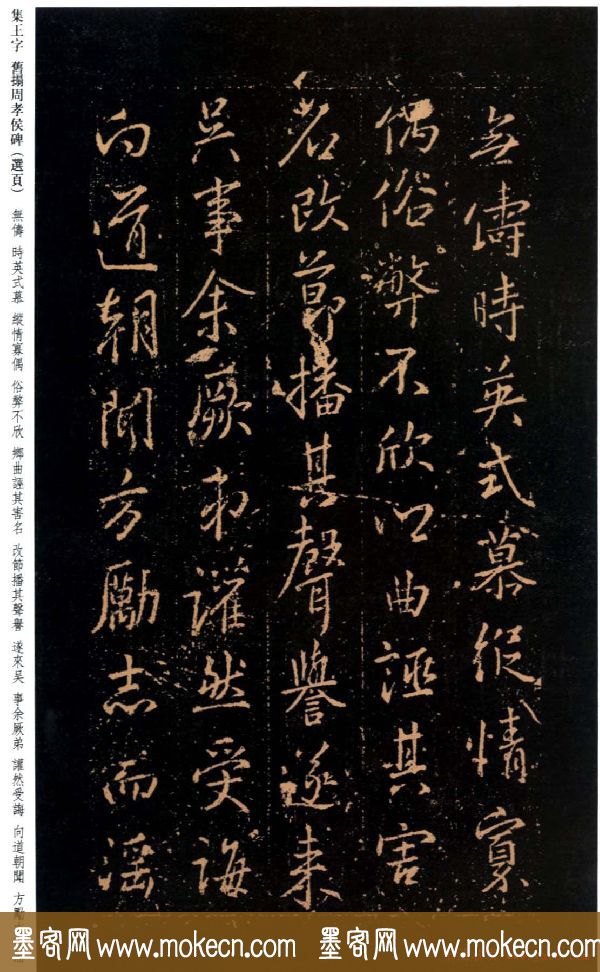 無儔時英式慕縱情寡
偶俗弊不欣鄉曲誣其害
名改節播其聲譽遂来
吴事余厥弟讙然受誨
向道朝聞方勵志而淫
集王字 舊搨周孝侯碑（選頁） 無儔 時英式慕 縱情寡偶 俗弊不欣 鄉曲誣其害名 改節播其聲譽 遂來吴 事余厥弟 讙然受誨 向道朝聞 方勵
墨客网 www.mokecn.com 墨客网 www.mokecn.com